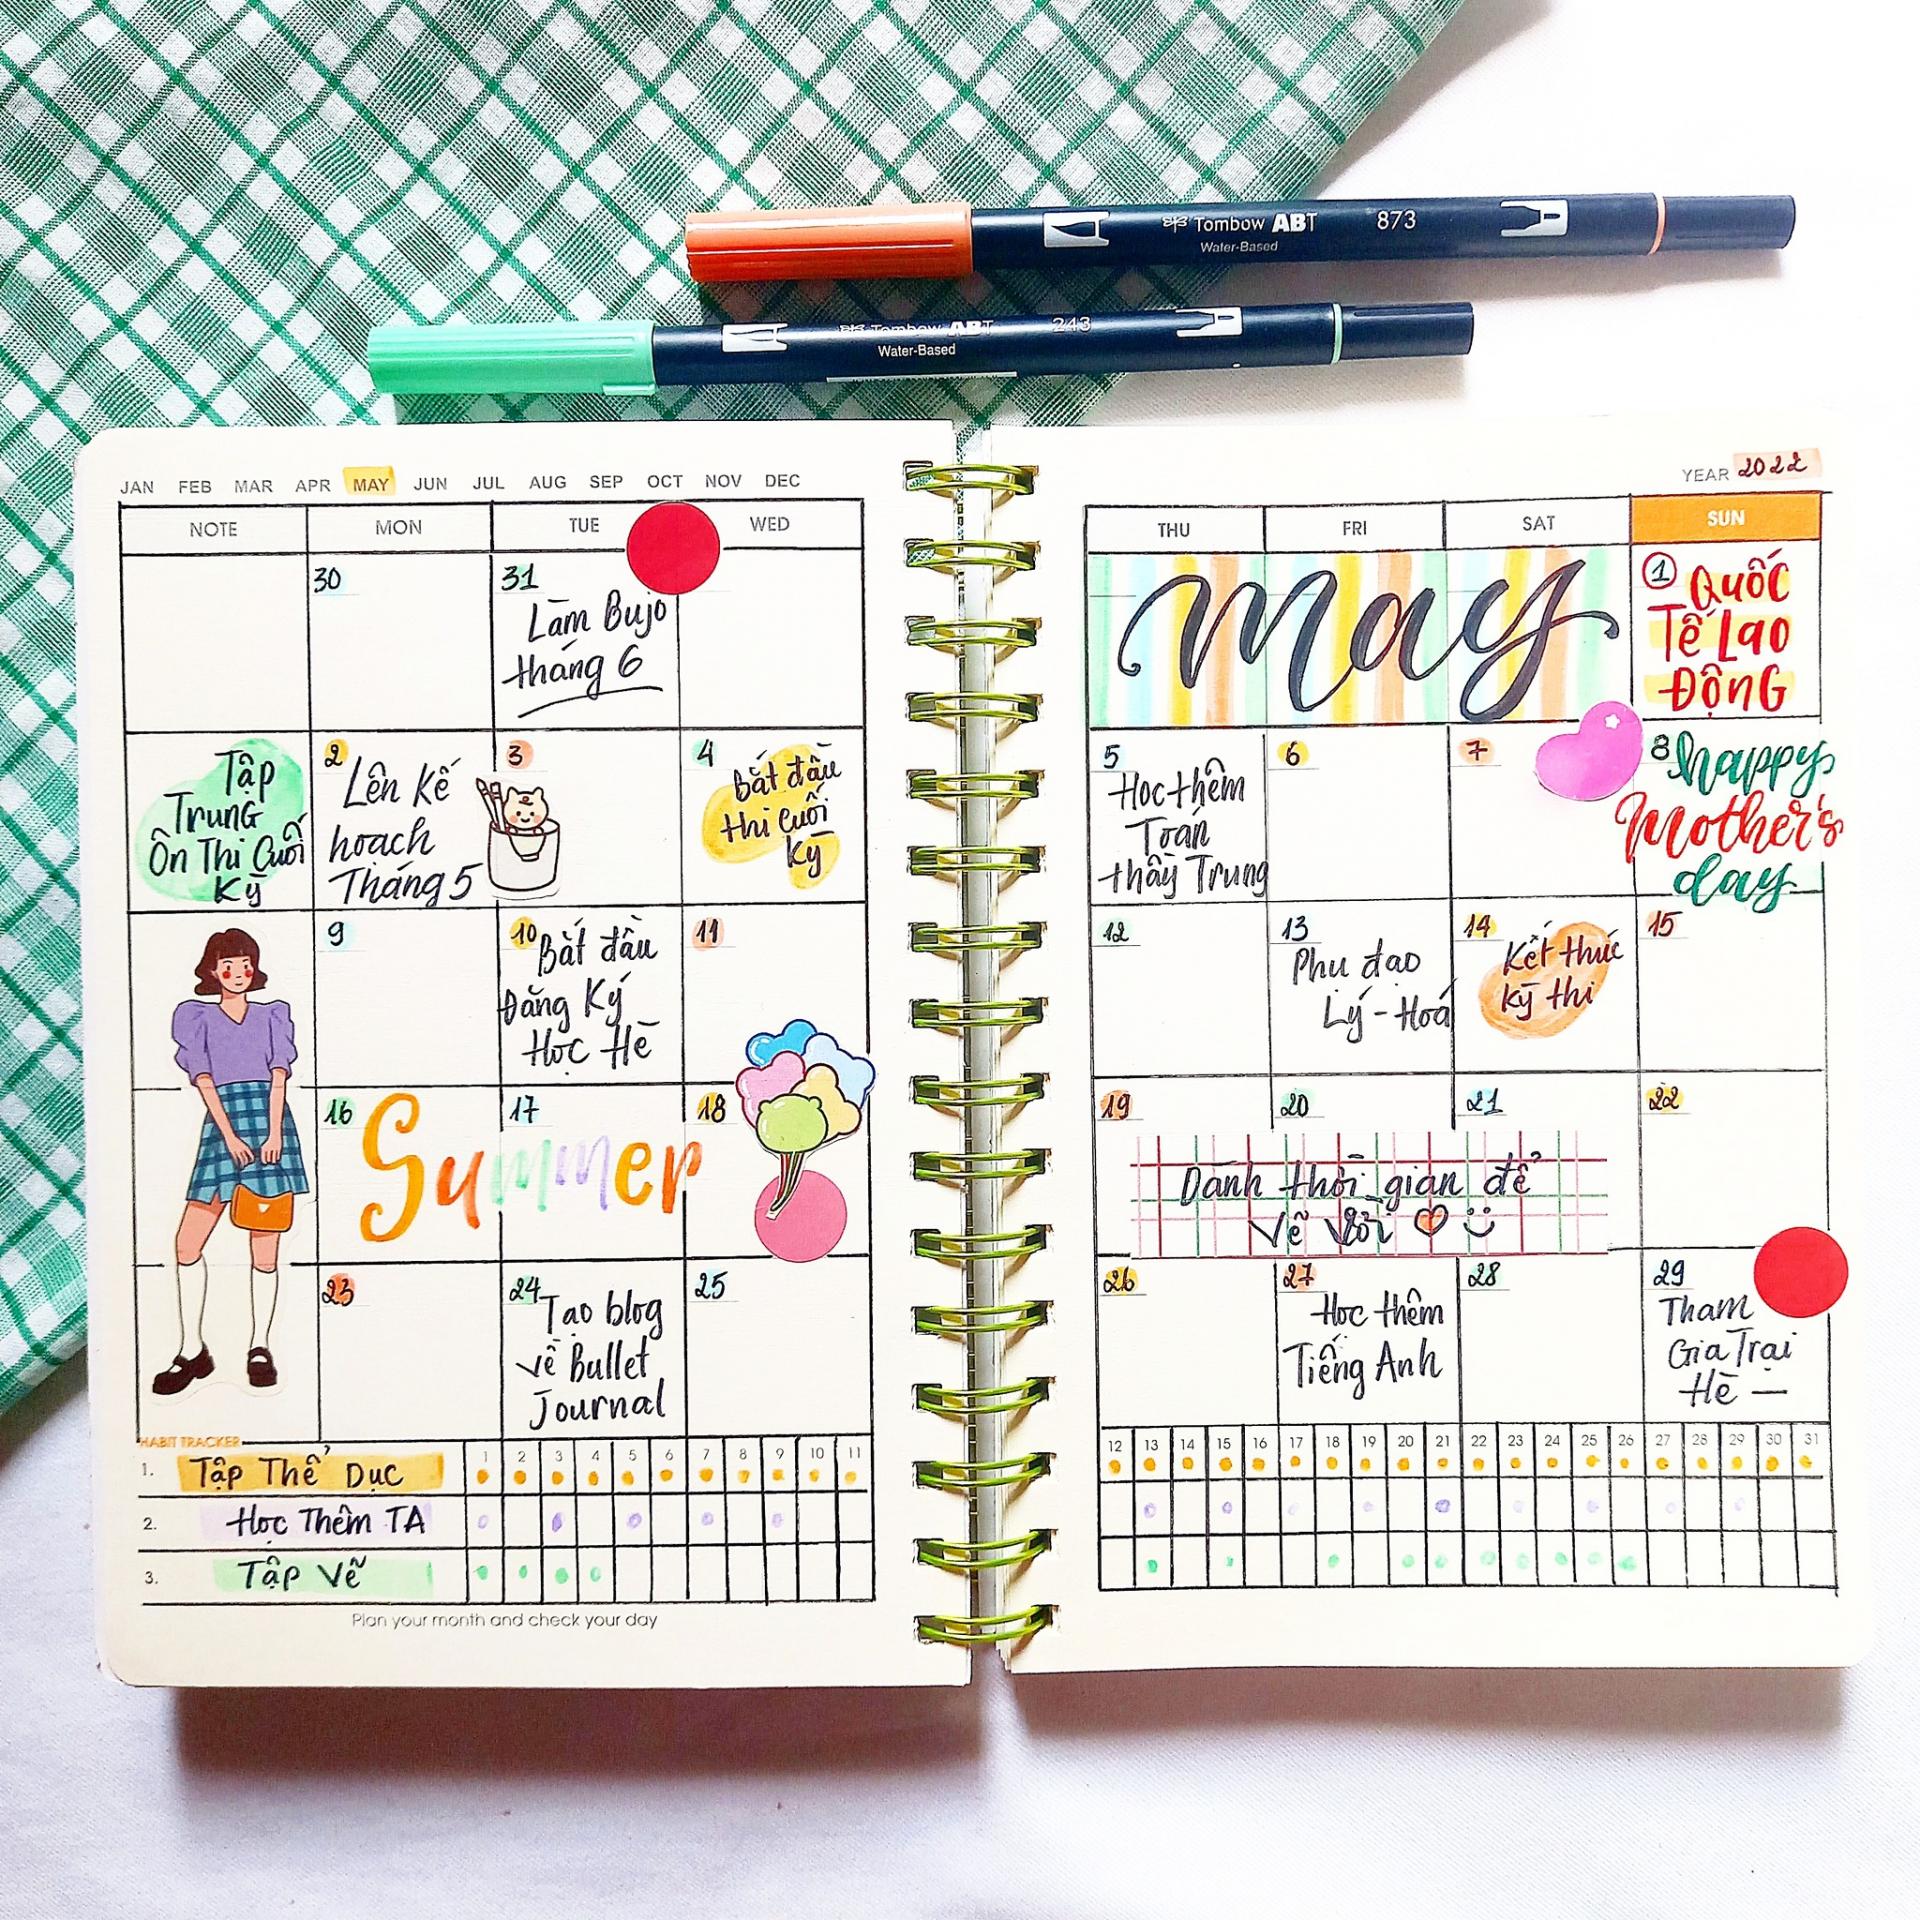 Tombow ABT 873
Water-Based
Tombow ABT 243
Water-Based
JAN FEB MAR APR MAY JUN JUL AUG SEP OCT NOV DEC
NOTE MON TUE WED
30
31
Làm Bujo
tháng 6
Tập
Trung
Ôn Thi Cuối
Kỳ
2
Lên Kế
hoạch
Tháng 5
3
4
Bắt đầu
thi cuối
kỳ
9
10
Bắt đầu
Đăng Ký
Học Hè
11
16
17
18
Summer
23
24
Tạo blog
về Bullet
Journal
25
HABIT TRACKER
1 2 3 4 5 6 7 8 9 10 11
1. Tập Thể Dục
2. Học Thêm TA
3. Tập Vẽ
Plan your month and check your day
YEAR 2022
THU FRI SAT SUN
May
1
Quốc
Tế Lao
Động
5
Học thêm
Toán
thầy Trung
6
7
8
happy
Mother's
day
12
13
Phụ đạo
Lý - Hoá
14
Kết thúc
kỳ thi
15
19
20
21
22
Dành thời gian để
vẽ vời
26
27
Học thêm
Tiếng Anh
28
29
Tham
Gia Trại
Hè
12 13 14 15 16 17 18 19 20 21 22 23 24 25 26 27 28 29 30 31